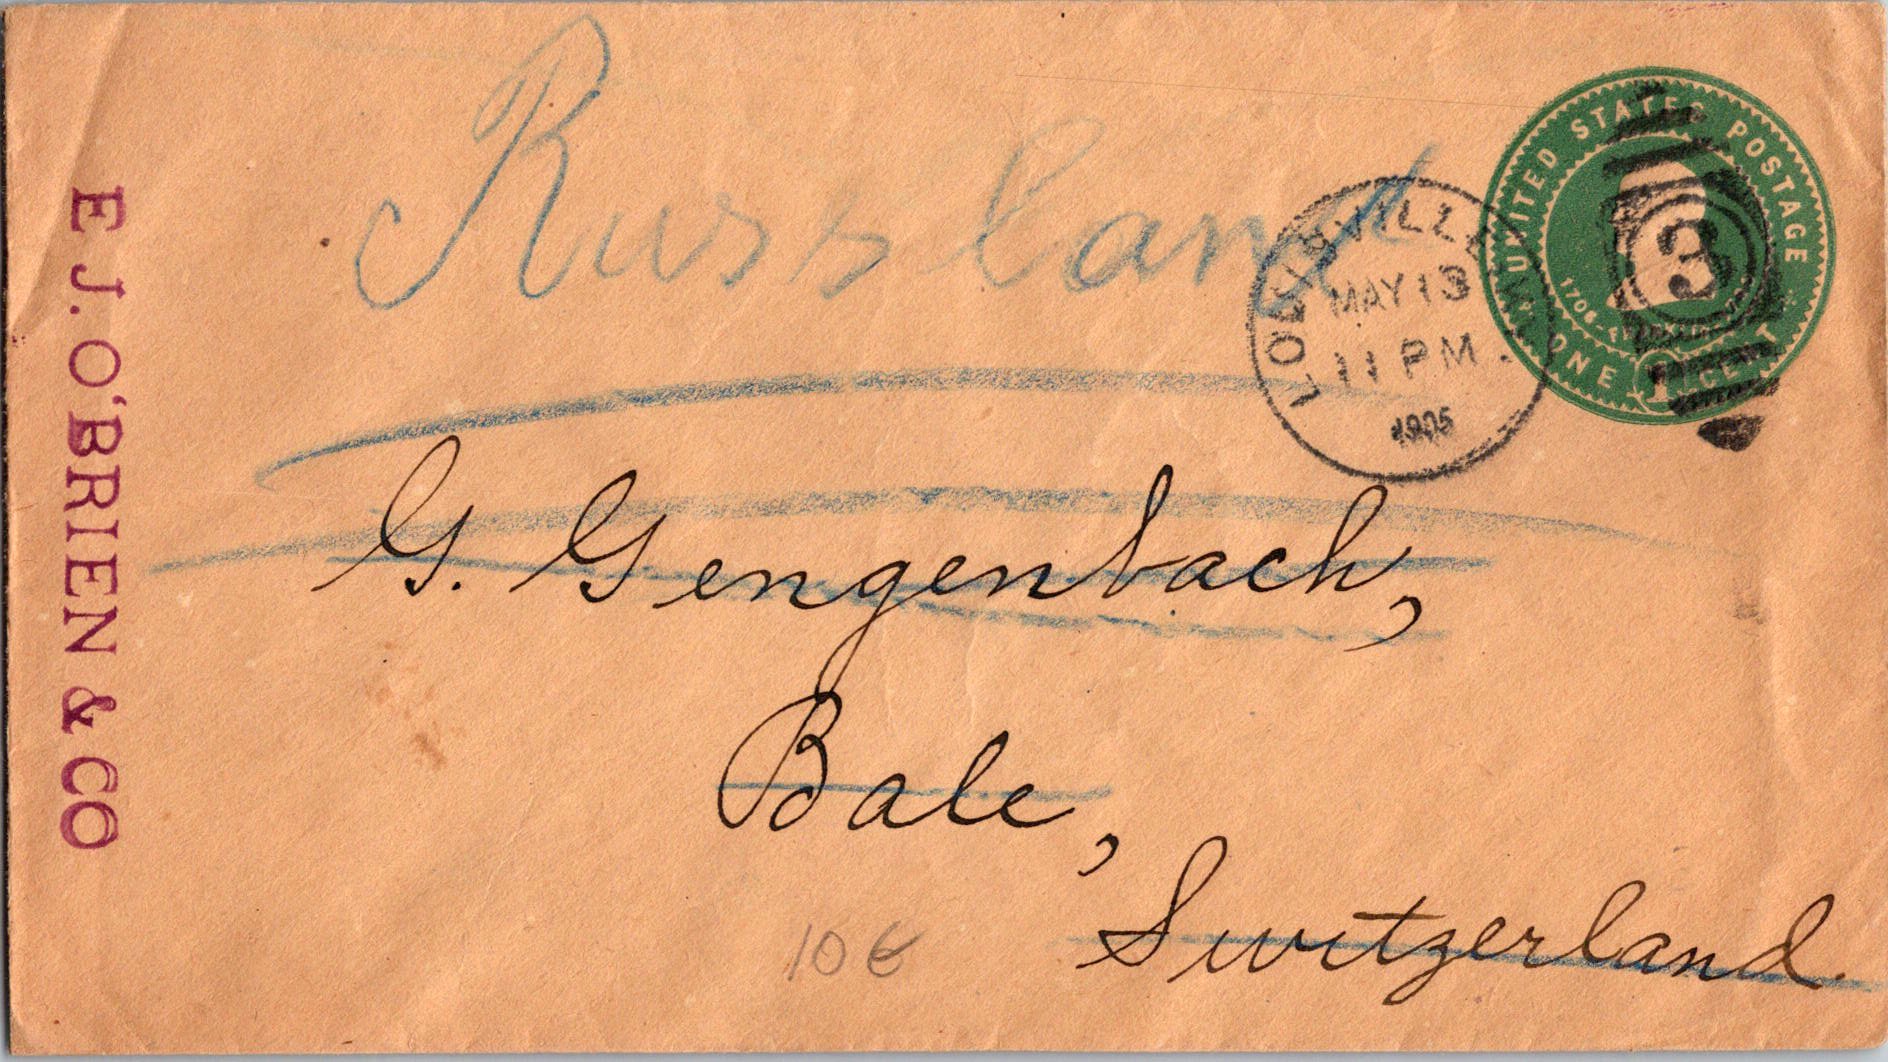 Russland
UNITED STATES POSTAGE
1706-FRANKLIN-1790
ONE 1 CENT
3
LOUISVILLE
MAY 13
11 PM
1905
E J. O'BRIEN & CO
G. Gengenbach,
Bale,
Switzerland.
10 €